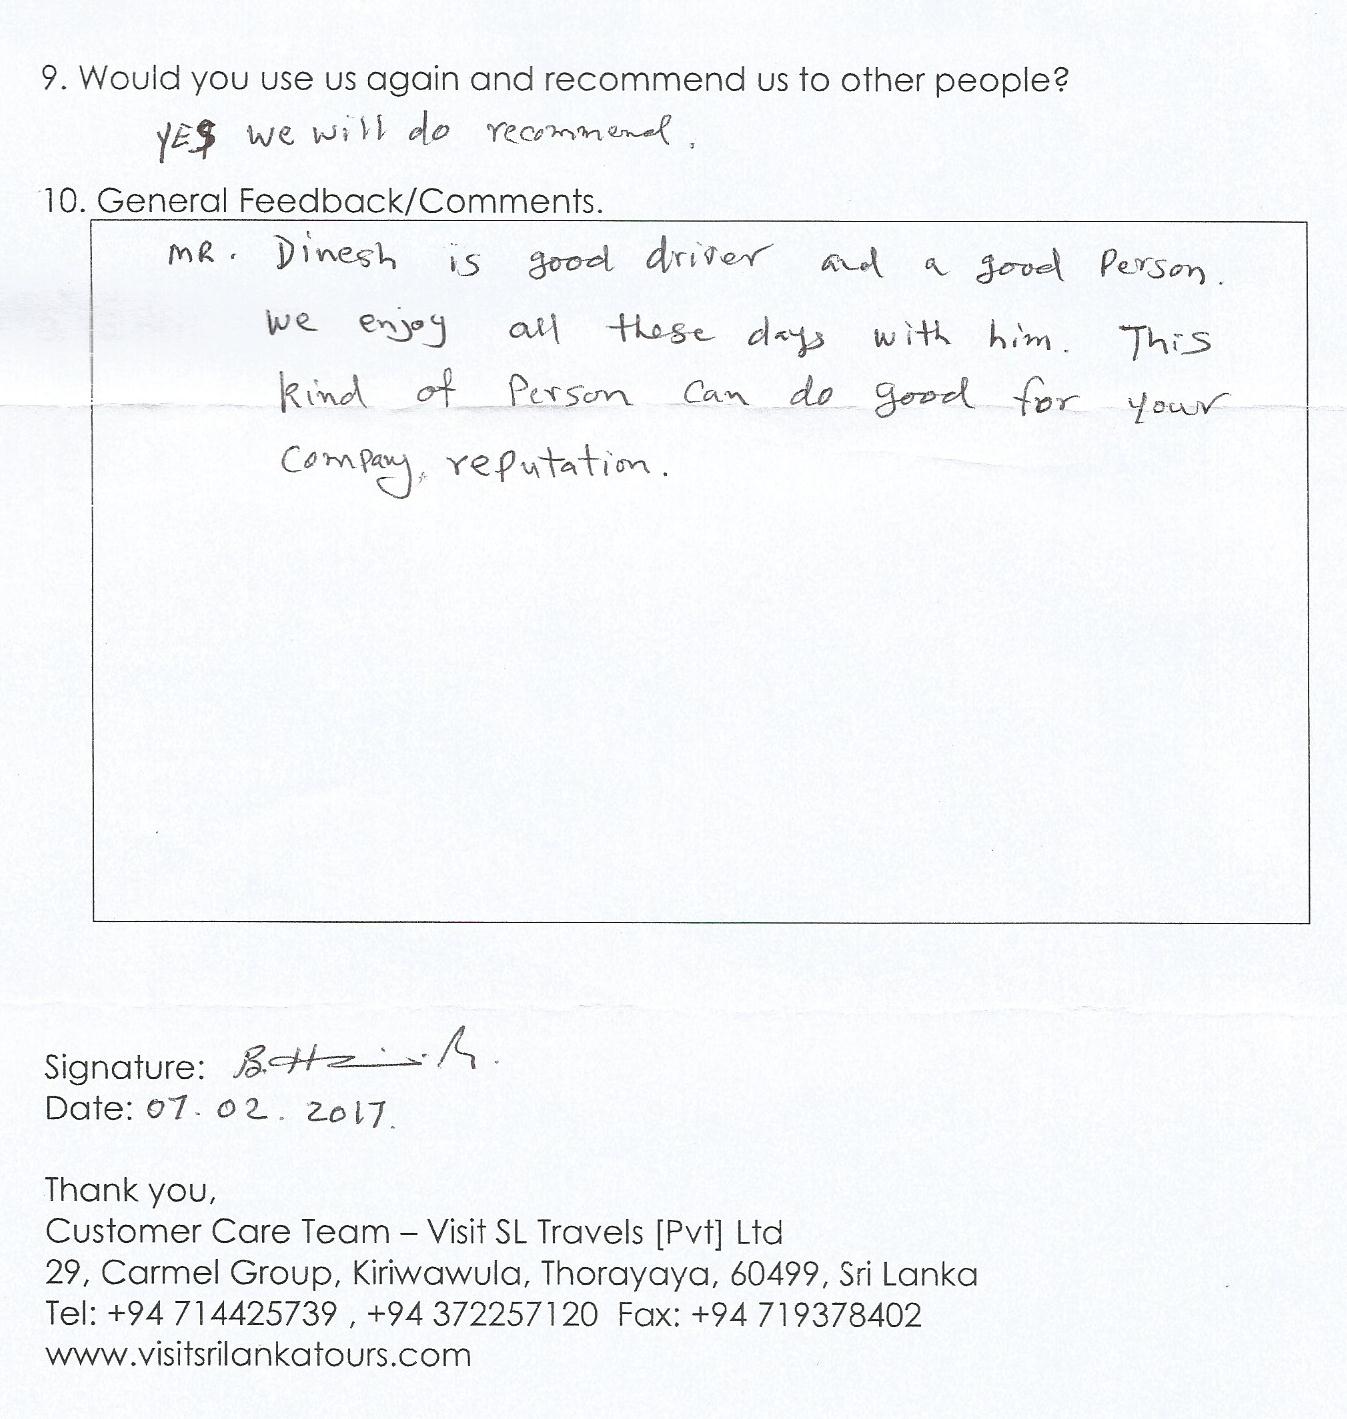 9. Would you use us again and recommend us to other people?
YES we will do recommend.
10. General Feedback/Comments.
MR. Dinesh is good driver and a good Person.
we enjoy all these days with him. This
kind of Person can do good for your
Company, reputation.
Signature:
Date: 07.02.2017.
Thank you,
Customer Care Team – Visit SL Travels [Pvt] Ltd
29, Carmel Group, Kiriwawula, Thorayaya, 60499, Sri Lanka
Tel: +94 714425739 , +94 372257120 Fax: +94 719378402
www.visitsrilankatours.com